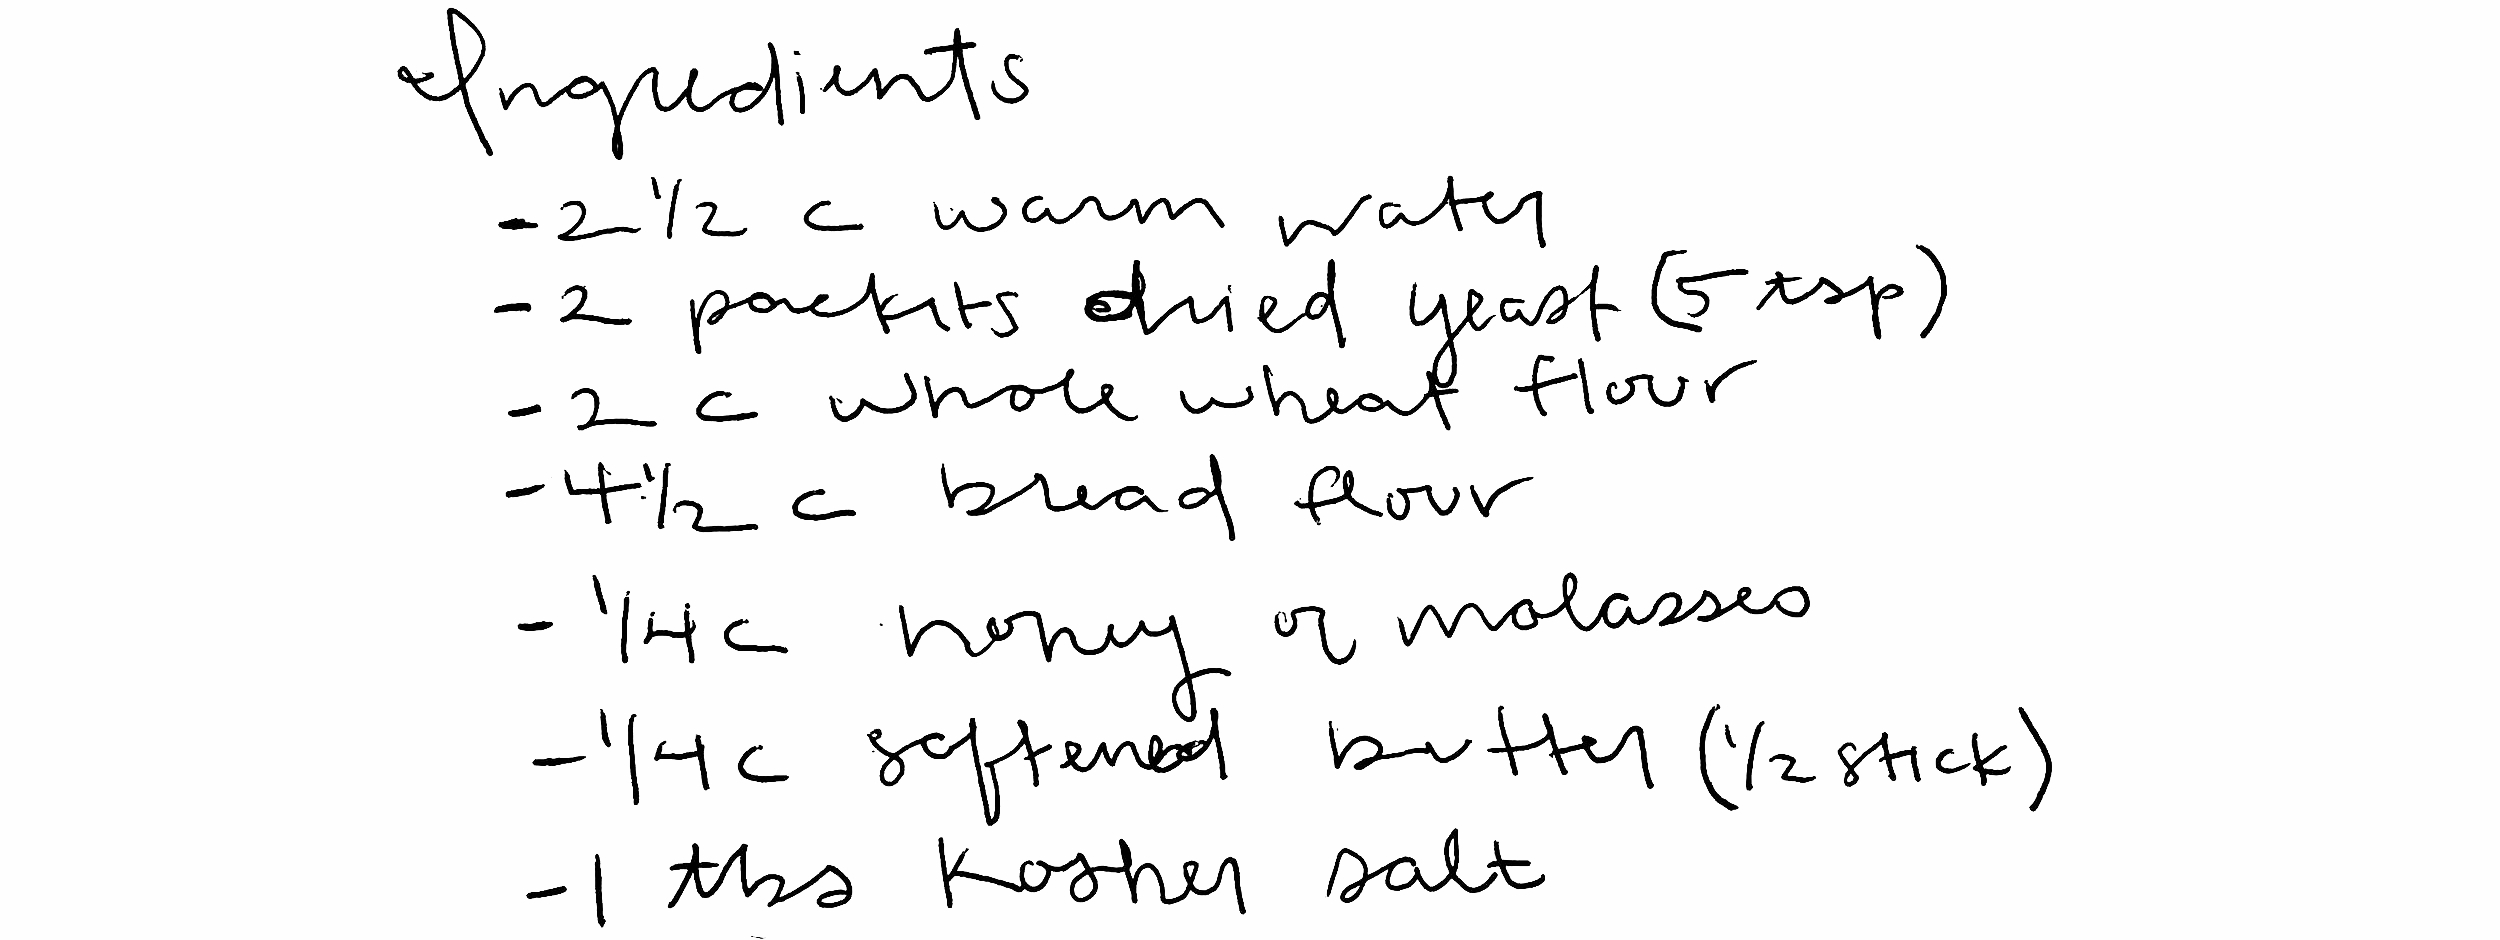 Ingredients
- 2 1/2 c warm water
- 2 packets dried yeast (5 tsp)
- 2 c whole wheat flour
- 4 1/2 c bread flour
- 1/4 c honey or molasses
- 1/4 c softened butter (1/2 stick)
- 1 tbs kosher salt